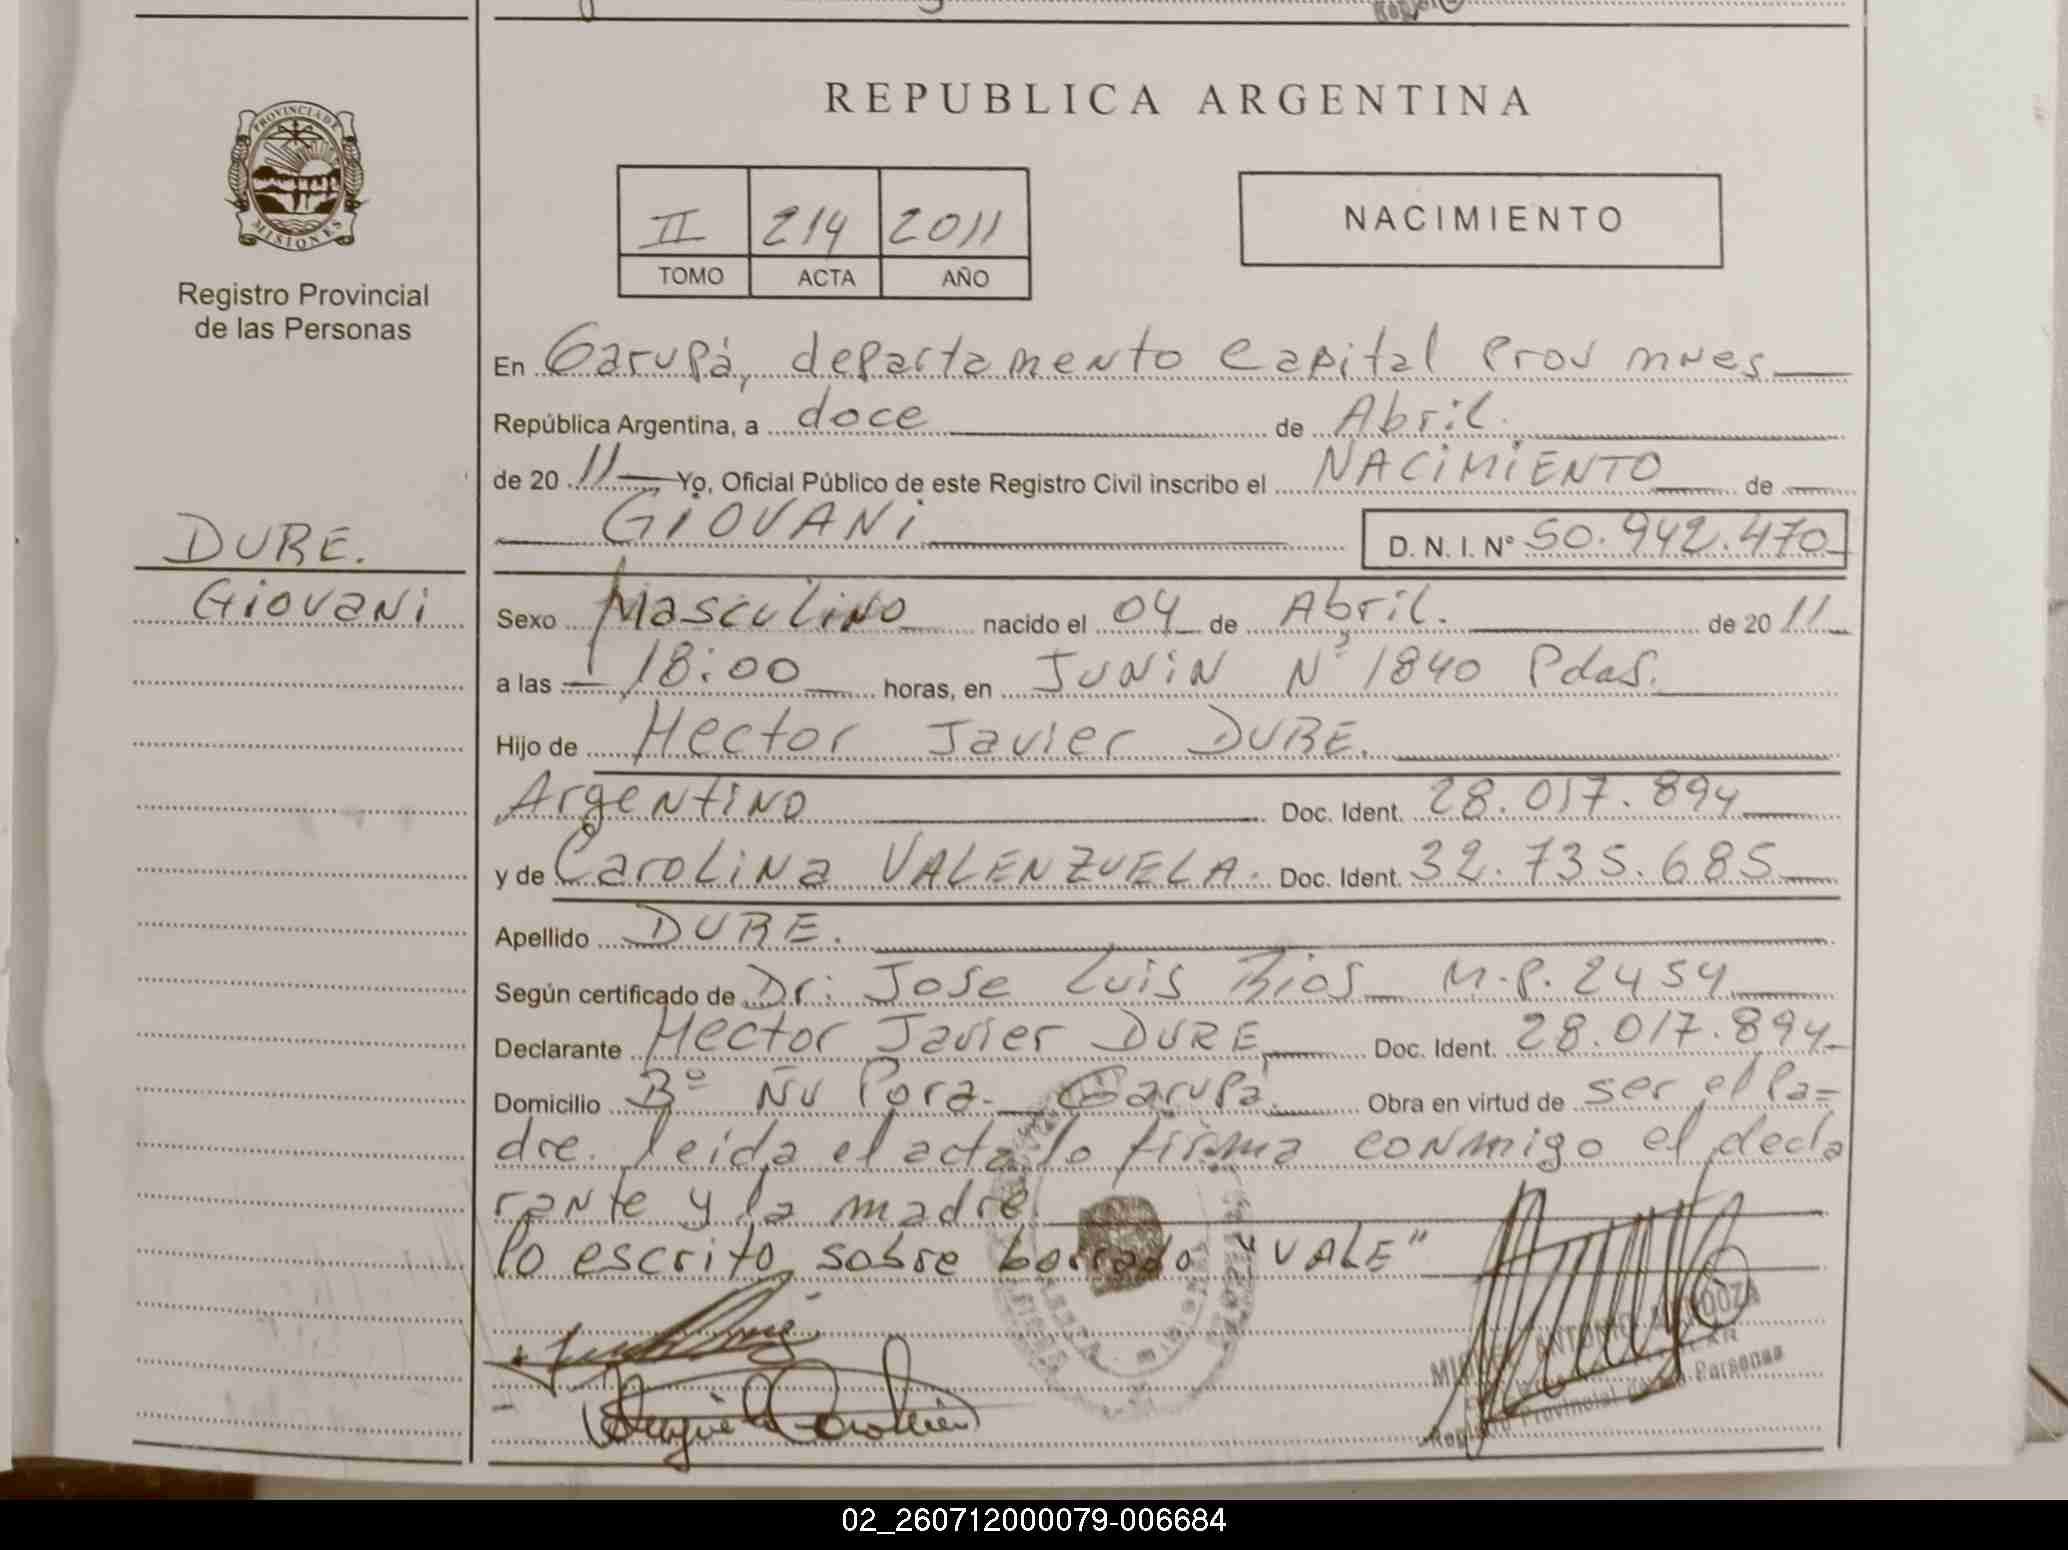 REPUBLICA ARGENTINA
PROVINCIA DE
MISIONES
Registro Provincial
de las Personas
II 214 2011
TOMO ACTA AÑO
NACIMIENTO
DURE.
Giovani
En Garupá, departamento Capital Prov mnes
República Argentina, a doce de Abril.
de 20 11 Yo, Oficial Público de este Registro Civil inscribo el NACIMIENTO de
GIOVANI D. N. I. Nº 50.942.470
Sexo Masculino nacido el 04 de Abril. de 20 11
a las 18:00 horas, en JUNIN Nº 1840 Pdas.
Hijo de Hector Javier DURE.
Argentino Doc. Ident. 28.017.894
y de Carolina VALENZUELA. Doc. Ident. 32.735.685
Apellido DURE.
Según certificado de Dr: Jose Luis Rios M.P. 2454
Declarante Hector Javier DURE Doc. Ident. 28.017.894
Domicilio Bº Ñu Pora. Garupá. Obra en virtud de ser el Pa=
dre. leida el acta lo firma conmigo el decla
rante y la madre.
lo escrito sobre borrado "VALE"
ANTONIO
Registro Provincial de las Personas
02_260712000079-006684